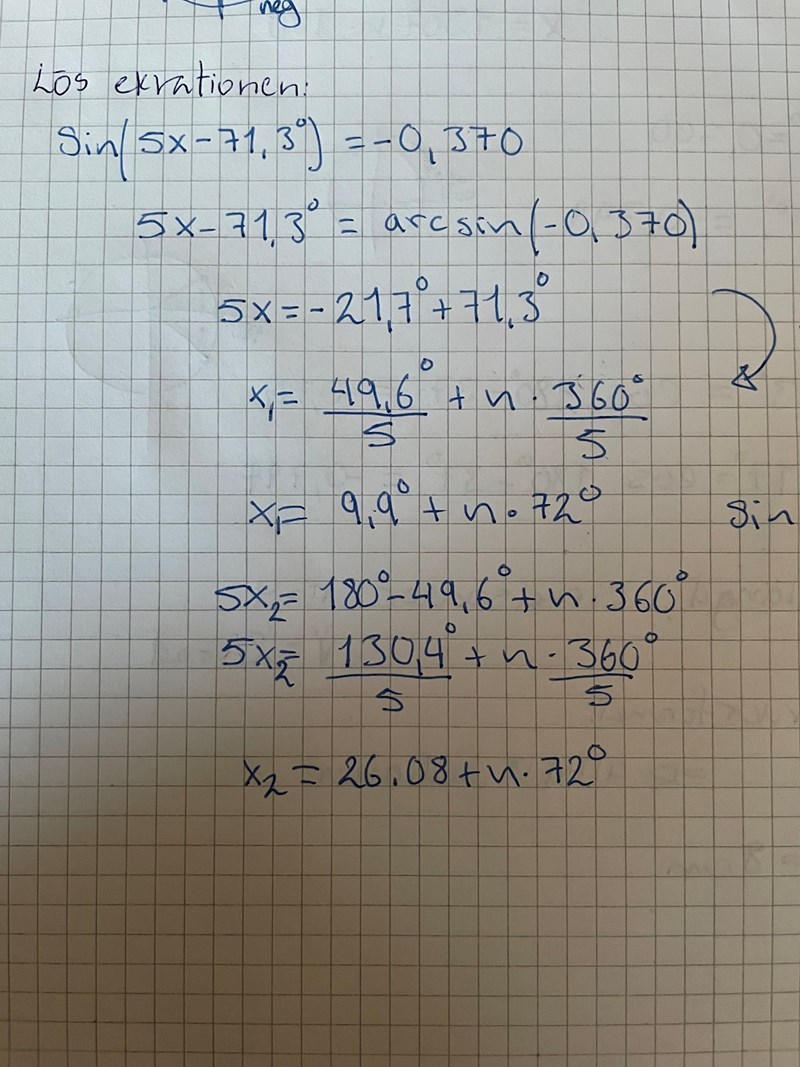 neg
Lös ekvationen:
Sin(5x-71,3°) = -0,370
5x-71,3° = arcsin(-0,370)
5x = -21,7° + 71,3°
x₁ = 49,6°/5 + n · 360°/5
x₁ = 9,9° + n · 72°
Sin
5x₂ = 180° - 49,6° + n · 360°
5x₂ = 130,4°/5 + n · 360°/5
x₂ = 26.08 + n · 72°